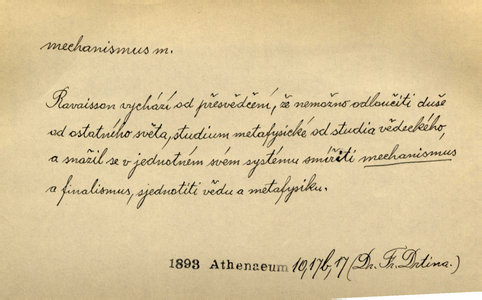 mechanismus m.
Ravaisson vychází od přesvědčení, že nemožno odloučiti duše
od ostatního světa, studium metafysické od studia vědeckého,
a snažil se v jednotném svém systému smířiti mechanismus
a finalismus, sjednotiti vědu a metafysiku.
1893 Athenaeum 10, 17b, 17 (Dr. Fr. Drtina.)